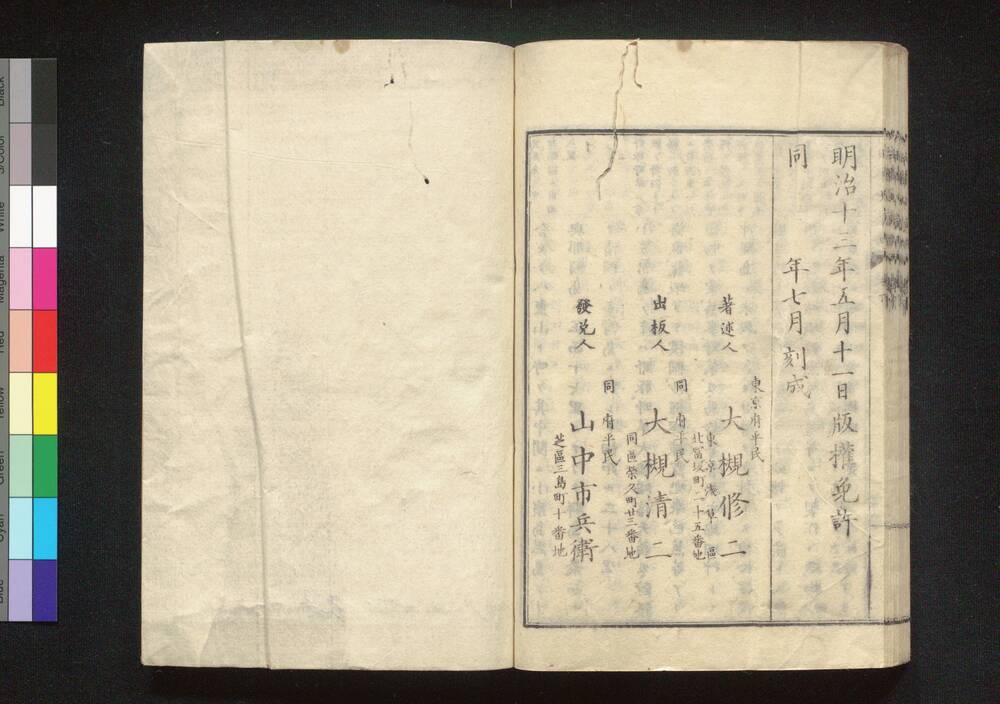 明治十二年五月十一日版權免許
同 年七月刻成
東京府平民
著述人 大槻修二
東京浅草區
北富坂町二十五番地
同府平民
出板人 大槻清二
同區榮久町廿三番地
同府平民
發兌人 山中市兵衛
芝區三島町十番地
Black
3/Color
White
Magenta
Red
Yellow
Green
Cyan
Blue